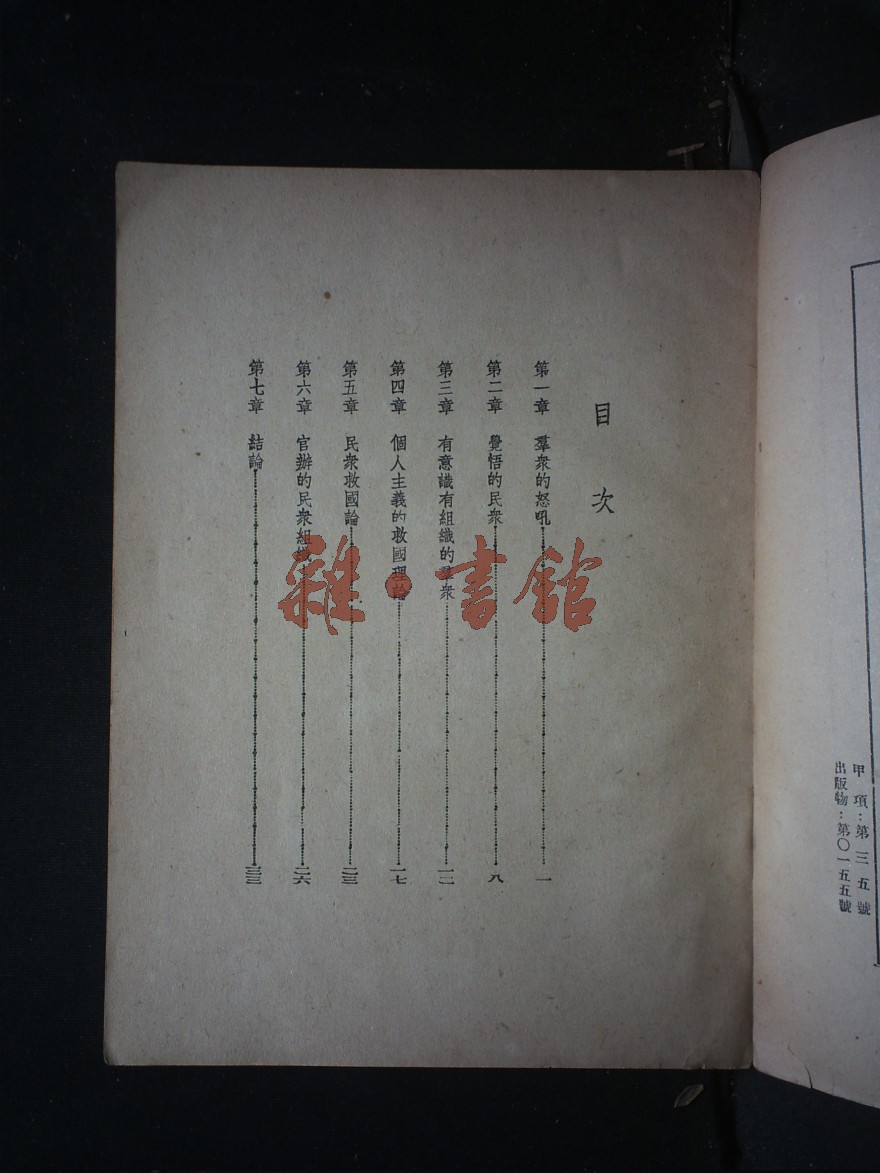 目次
第一章 羣衆的怒吼 一
第二章 覺悟的民衆 八
第三章 有意識有組織的羣衆 一二
第四章 個人主義的救國理論 一七
第五章 民衆救國論 二三
第六章 官辦的民衆組織 二六
第七章 結論 三三
甲項：第三五號
出版物：第〇一五五號
雜·書館